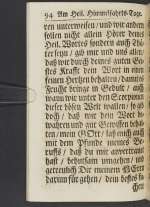 94 Am Heil. Himmelfahrts-Tage.
ren unterweisen / und wir andern
sollen nicht allein Hörer deines
Heil. Wortes sondern auch Thä-
ter seyn / gib mir und uns allen /
daß wir durch deines guten Gei-
stes Krafft dein Wort in einem
feinen Hertzen behalten / damit es
Frucht bringe in Gedult / auch
wann wir unter den Scorpionen
dieser bösen Welt wallen / so
doch / daß wir dein Wort be-
wahren und gute Gewissen behal-
ten / mein GOtt / laß auch mich
mit dem Pfunde meines Be-
ruffs / daß du mir anvertrauet
hast / behutsam umgehen / und
getreulich Dir meinem HErrn
darum für gehen / dem besten